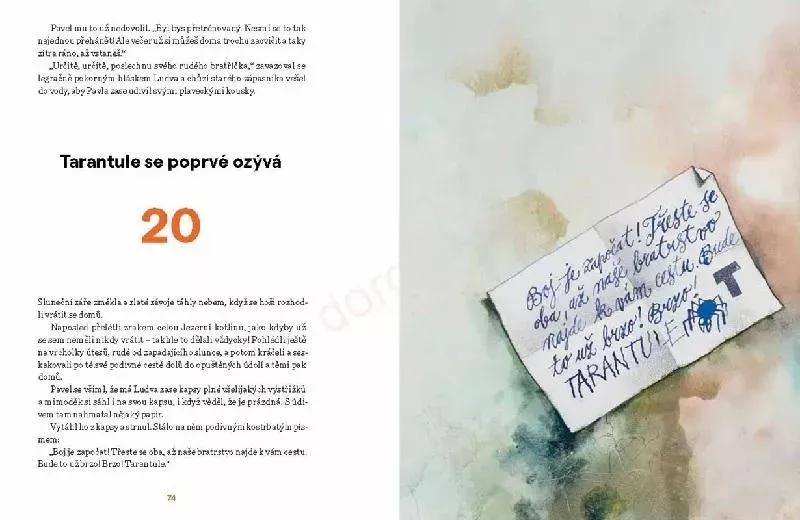 Pavel mu to už nedovolil. „Byl bys přetrénovaný. Nesmí se to tak
najednou přehánět! Ale večer už si můžeš doma trochu zacvičit a taky
zítra ráno, až vstaneš.“
„Určitě, určitě, poslechnu svého rudého bratříčka,“ zavazoval se
legračně pokorným hláskem Ludva a chůzí starého zápasníka vešel
do vody, aby Pavla zase udivil svými plaveckými kousky.
Tarantule se poprvé ozývá
20
Sluneční záře změkla a zlaté závoje táhly nebem, když se hoši rozhod-
li vrátit se domů.
Naposled přelétli zrakem celou Jezerní kotlinu, jako kdyby už
se sem neměli nikdy vrátit – takhle to dělali vždycky! Pohlédli ještě
na vrcholky útesů, rudé od zapadajícího slunce, a potom kráčeli a ses-
kakovali po té své podivné cestě dolů do opuštěných údolí a těmi pak
domů.
Pavel se všiml, že má Ludva zase kapsy plné všelijakých výstřižků
a mimoděk si sáhl i na svou kapsu, i když věděl, že je prázdná. S údi-
vem tam nahmatal nějaký papír.
Vytáhl ho z kapsy a strnul. Stálo na něm podivným kostrbatým pís-
mem:
„Boj je započat! Třeste se oba, až naše bratrstvo najde k vám cestu.
Bude to už brzo! Brzo! Tarantule.“
74
Boj je započat! Třeste se
oba, až naše bratrstvo
najde k vám cestu. Bude
to už brzo! Brzo!
TARANTULE
T